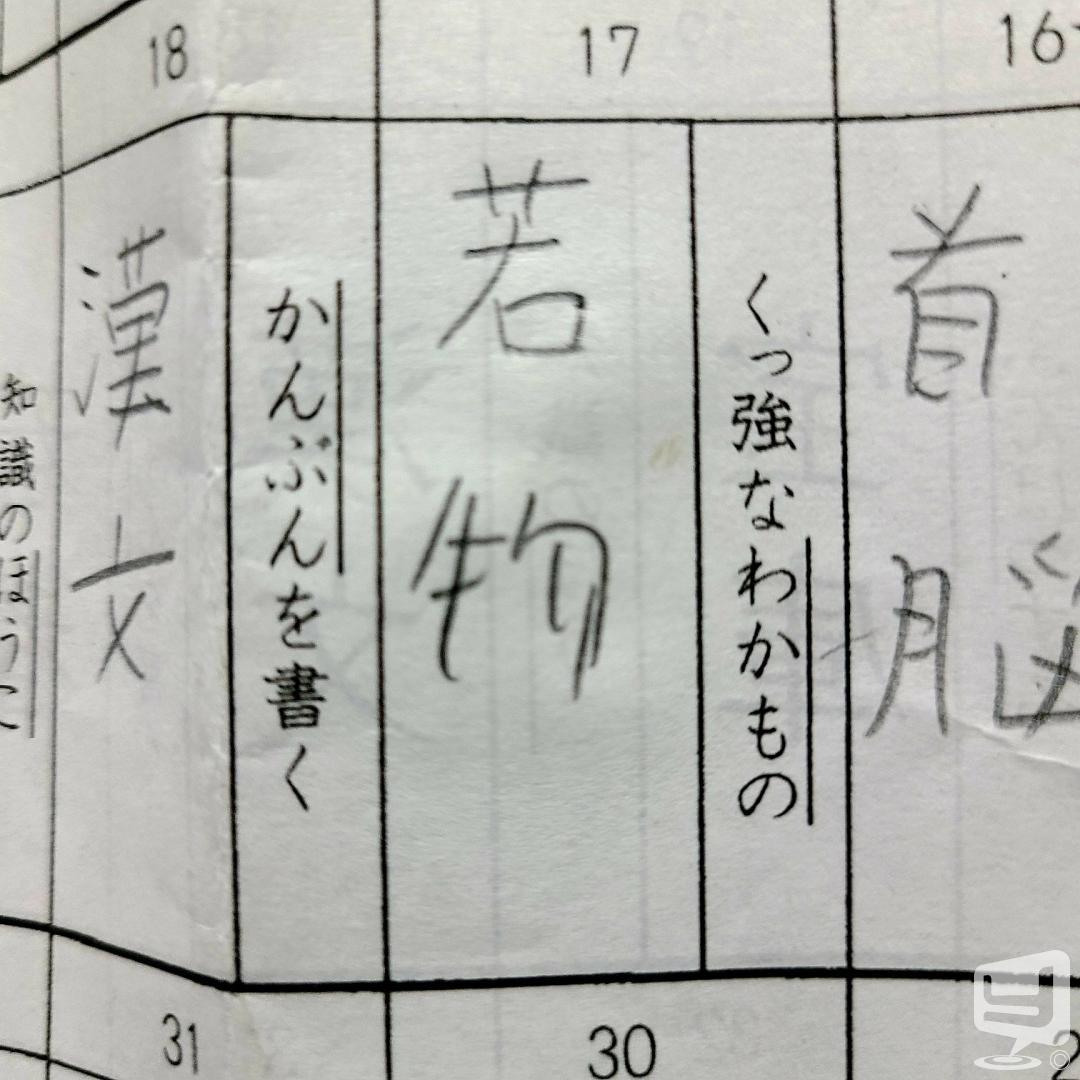 16
首脳
17
くっ強なわかもの
若物
18
かんぶんを書く
漢文
知識のほうこ
30
31